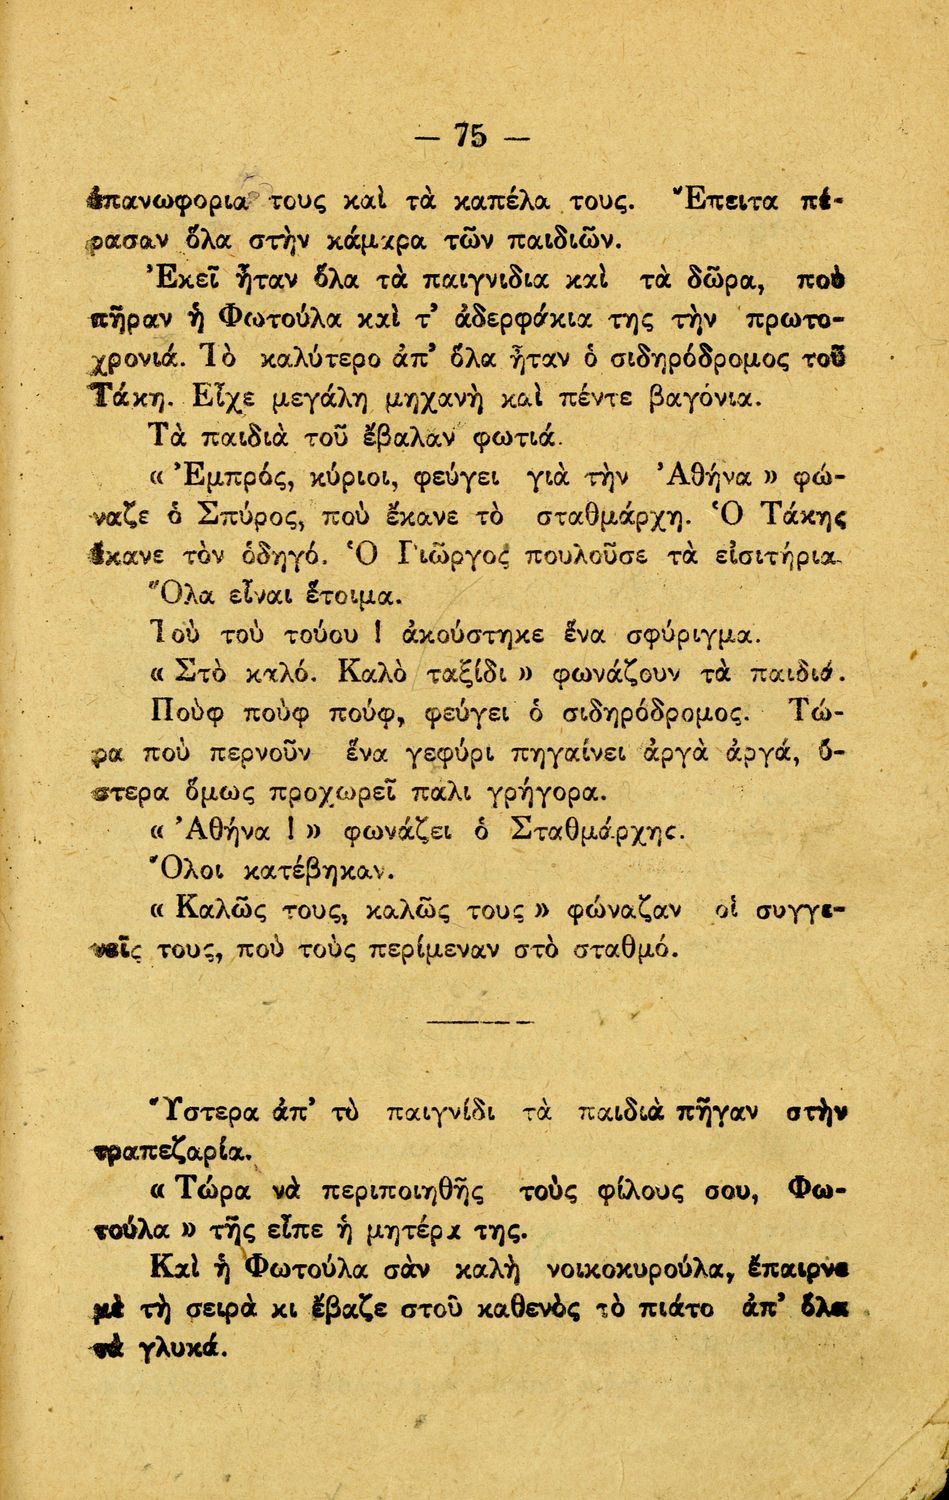 — 75 —
ἐπανωφορια τους καὶ τὰ καπέλα τους. Ἔπειτα πέ-
ρασαν ὅλα στὴν κάμαρα τῶν παιδιῶν.
Ἐκεῖ ἦταν ὅλα τὰ παιγνιδια καὶ τὰ δῶρα, ποὺ
πῆραν ἡ Φωτούλα καὶ τ’ ἀδερφάκια της τὴν πρωτο-
χρονιά. Τὸ καλύτερο ἀπ’ ὅλα ἦταν ὁ σιδηρόδρομος τοῦ
Τάκη. Εἶχε μεγάλη μηχανὴ καὶ πέντε βαγόνια.
Τὰ παιδιὰ τοῦ ἔβαλαν φωτιά.
« Ἐμπρός, κύριοι, φεύγει γιὰ τὴν Ἀθήνα » φώ-
ναζε ὁ Σπύρος, ποὺ ἔκανε τὸ σταθμάρχη. Ὁ Τάκης
ἔκανε τὸν ὁδηγό. Ὁ Γιῶργος πουλοῦσε τὰ εἰσιτήρια.
Ὅλα εἶναι ἕτοιμα.
Τοὺ τοὺ τούου ! ἀκούστηκε ἕνα σφύριγμα.
« Στὸ καλό. Καλὸ ταξίδι » φωνάζουν τὰ παιδιά.
Ποὺφ ποὺφ πούφ, φεύγει ὁ σιδηρόδρομος. Τώ-
ρα ποὺ περνοῦν ἕνα γεφύρι πηγαίνει ἀργὰ ἀργά, ὕ-
στερα ὅμως προχωρεῖ παλι γρήγορα.
« Ἀθήνα ! » φωνάζει ὁ Σταθμάρχης.
Ὅλοι κατέβηκαν.
« Καλῶς τους, καλῶς τους » φώναζαν οἱ συγγε-
νεῖς τους, ποὺ τοὺς περίμεναν στὸ σταθμό.
Ὕστερα ἀπ’ τὸ παιγνίδι τὰ παιδιὰ πῆγαν στὴν
τραπεζαρία.
« Τώρα νὰ περιποιηθῆς τοὺς φίλους σου, Φω-
τούλα » τῆς εἶπε ἡ μητέρα της.
Καὶ ἡ Φωτούλα σὰν καλὴ νοικοκυρούλα, ἔπαιρνε
μὲ τὴ σειρὰ κι ἔβαζε στοῦ καθενὸς τὸ πιάτο ἀπ’ ὅλα
τὰ γλυκά.